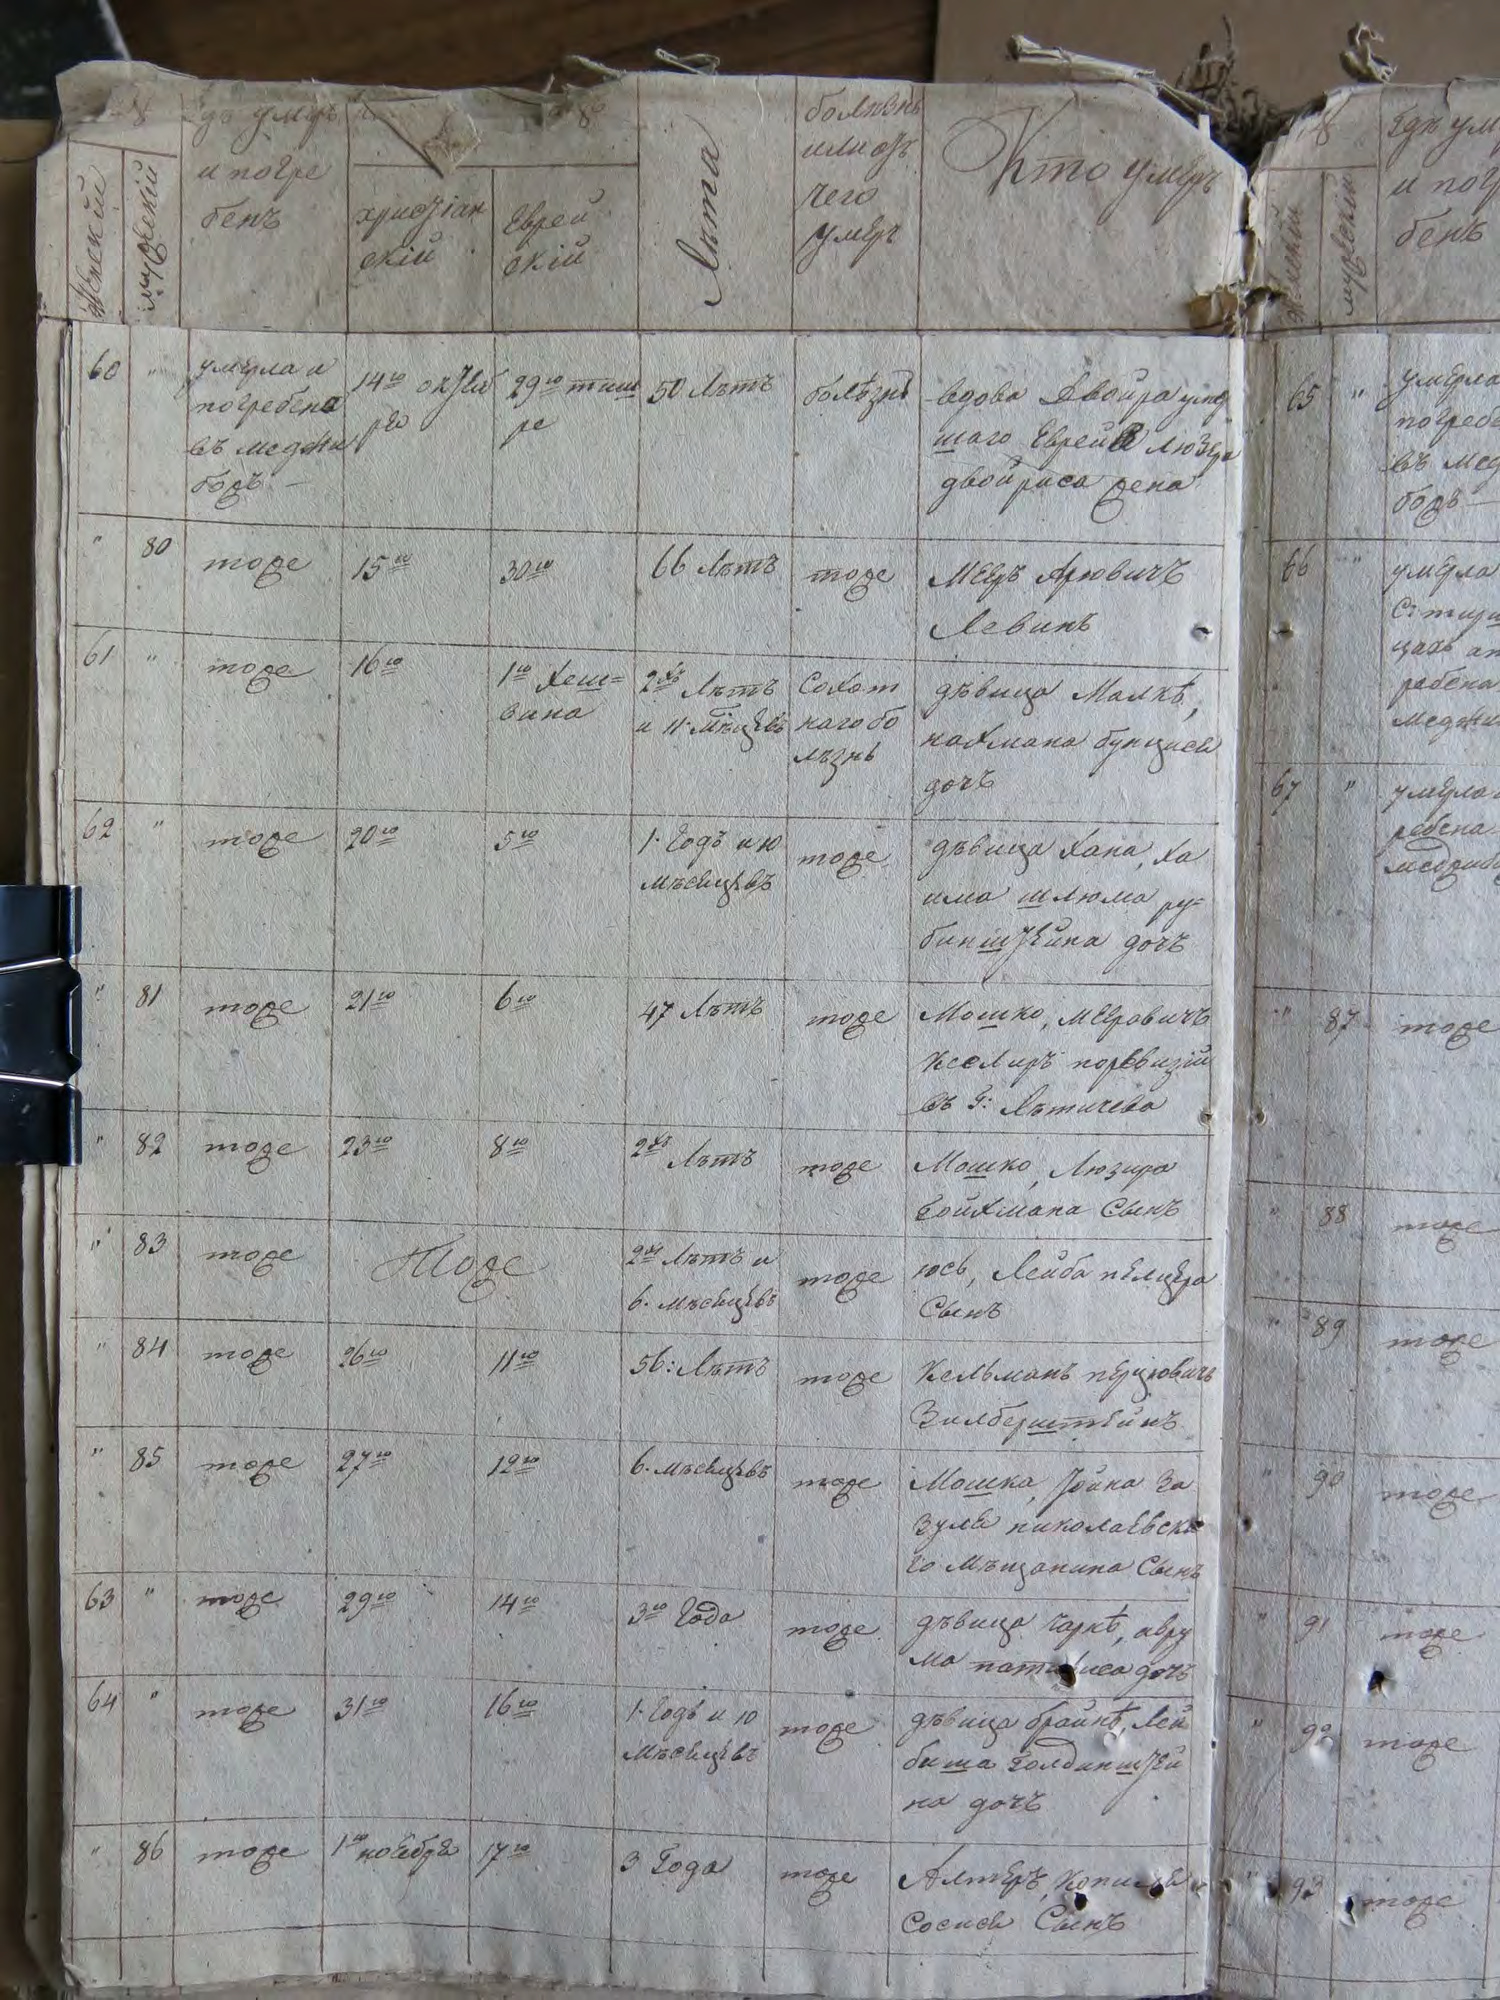 Женский
мужескій
гдѣ умеръ
и погре
бенъ
христіан
скій
Еврей
скій
Лѣта
болѣзнь
или отъ
чего
умеръ
Кто умеръ
60 " умерла и
погребена
въ меджи
божѣ
14го октяб
ря
29го тиш
ре
50 Лѣтъ
болѣзнѣ
вдова Двойра умер
шаго Еврея Люзера
двойриса жена
" 80 тоже 15го 30го 66 Лѣтъ тоже Мееръ Арювичъ
Левинъ
61 " тоже 16го 1го Хеш=
вина
2хъ Лѣтъ
и 11 Мѣцевъ
Сохот
наго бо
лѣзнь
дѣвица Малкѣ,
нахмана бунциса
дочъ
62 " тоже 20го 5го 1 Годъ и 10
мѣсяцевъ
тоже
дѣвица Хана, Ха
има шлюма ру=
бинштейна дочъ
" 81 тоже 21го 6го 47 Лѣтъ тоже Мошко, меровичъ
Кеслиръ поревизіи
въ г: Лѣтичева
" 82 тоже 23го 8го 2хъ Лѣтъ тоже Мошко, Люзира
Гойхмана Сынъ
" 83 тоже Тоже 2хъ Лѣтъ и
6. мѣсяцевъ
тоже
юсь, Лейба пелцера
Сынъ
" 84 тоже 26го 11го 56: Лѣтъ тоже Кельманъ перцювичъ
Зилберштейнъ
" 85 тоже 27го 12го 6. мѣсяцевъ тоже Мошка, Іойна За
зуля николаевска
го мѣщанина Сынъ
63 " тоже 29го 14го 3го Года тоже дѣвица Чаркѣ, авру
ма дочъ
64 " тоже 31го 16го 1. Годъ и 10
мѣсяцевъ
тоже
дѣвица брайнѣ, Лей
биша Голдинштей
на дочъ
" 86 тоже 1го ноября 17го 3 Года тоже Алтеръ,
Сосися Сынъ
Женскій
мужескій
гдѣ ум
и погр
бенъ
65 " умерла
погребе
въ мед
божѣ
66 " умерла
рабена
67 " умерла
ребена
" 87 тоже
" 88 тоже
" 89 тоже
" 90 тоже
" 91 тоже
" 92 тоже
" 93 тоже